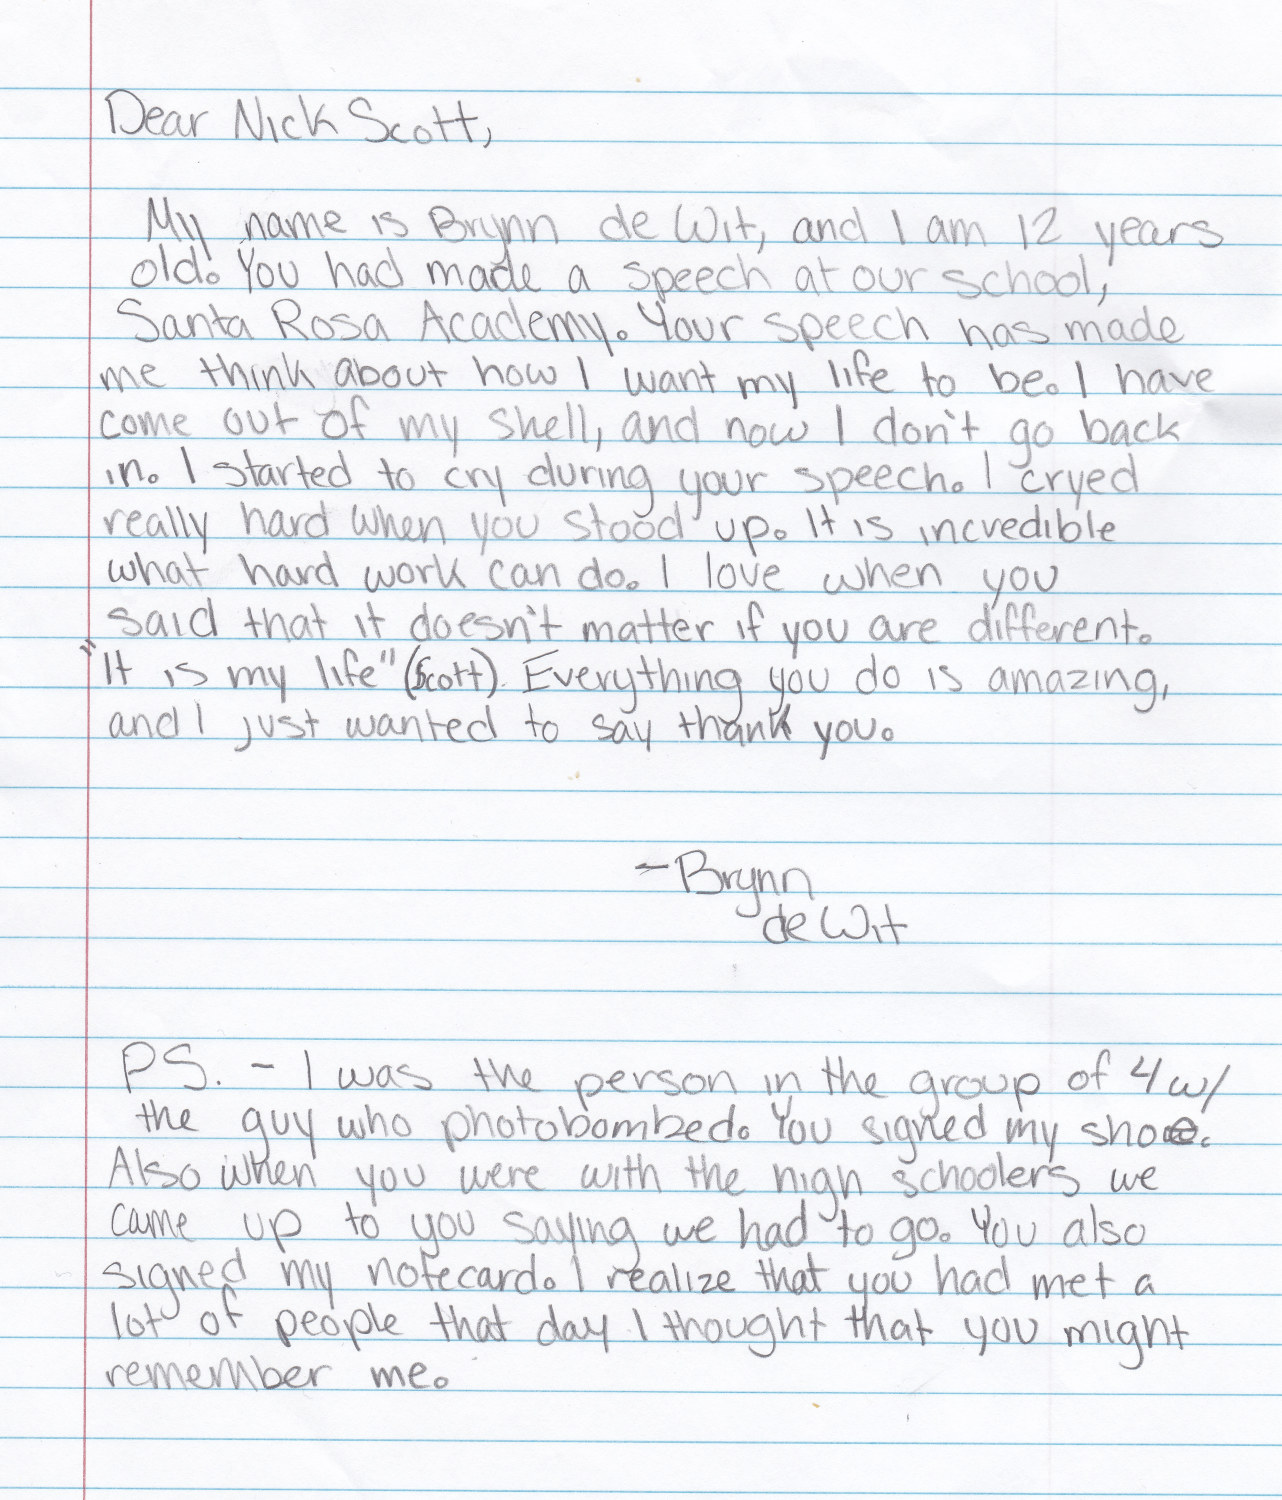 Dear Nick Scott,
My name is Brynn de Wit, and I am 12 years
old. You had made a speech at our school,
Santa Rosa Academy. Your speech has made
me think about how I want my life to be. I have
come out of my shell, and now I don't go back
in. I started to cry during your speech. I cryed
really hard when you stood up. It is incredible
what hard work can do. I love when you
said that it doesn't matter if you are different.
"It is my life" (Scott). Everything you do is amazing,
and I just wanted to say thank you.
- Brynn
de Wit
PS. - I was the person in the group of 4 w/
the guy who photobombed. You signed my shoe.
Also when you were with the high schoolers we
came up to you saying we had to go. You also
signed my notecard. I realize that you had met a
lot of people that day I thought that you might
remember me.